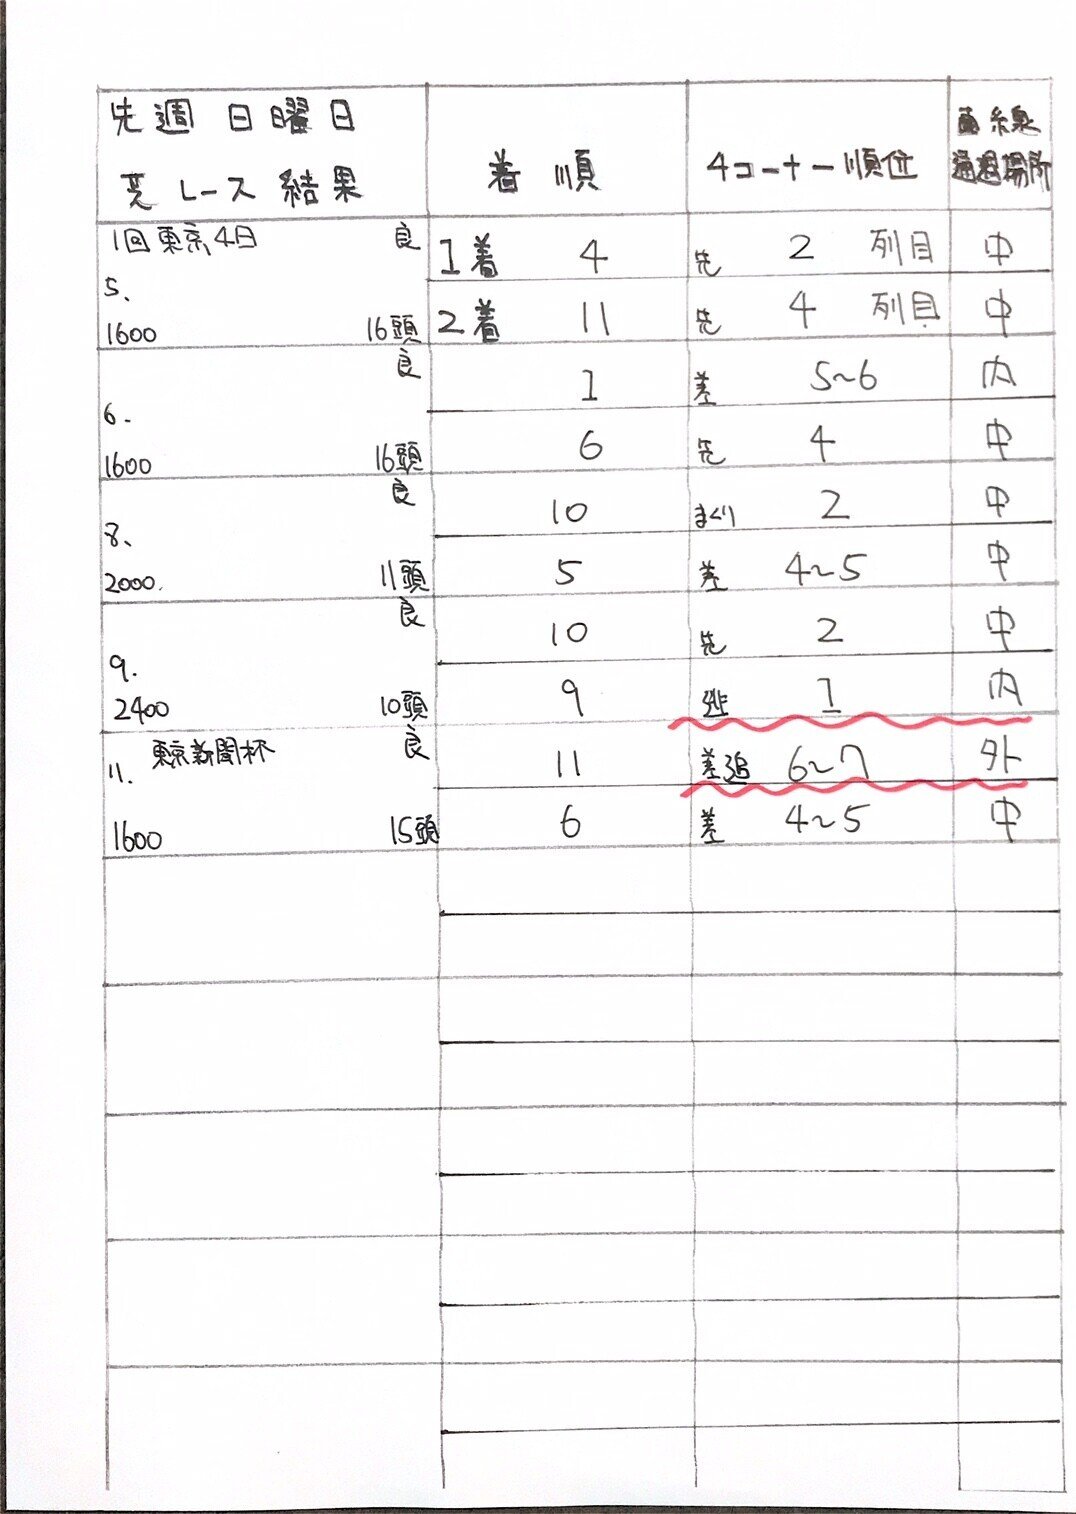 先週 日曜日
芝 レース 結果
着 順
4コーナー順位
直線
通過場所
1回東京4日 良
5、
1600 16頭
1着 4 先 2 列目 中
2着 11 先 4 列目 中
良
6.
1600 16頭
1 差 5~6 内
6 先 4 中
良
8、
2000. 11頭
10 まくり 2 中
5 差 4~5 中
良
9.
2400 10頭
10 先 2 中
9 逃 1 内
11. 東京新聞杯 良
1600 15頭
11 差追 6~7 外
6 差 4~5 中